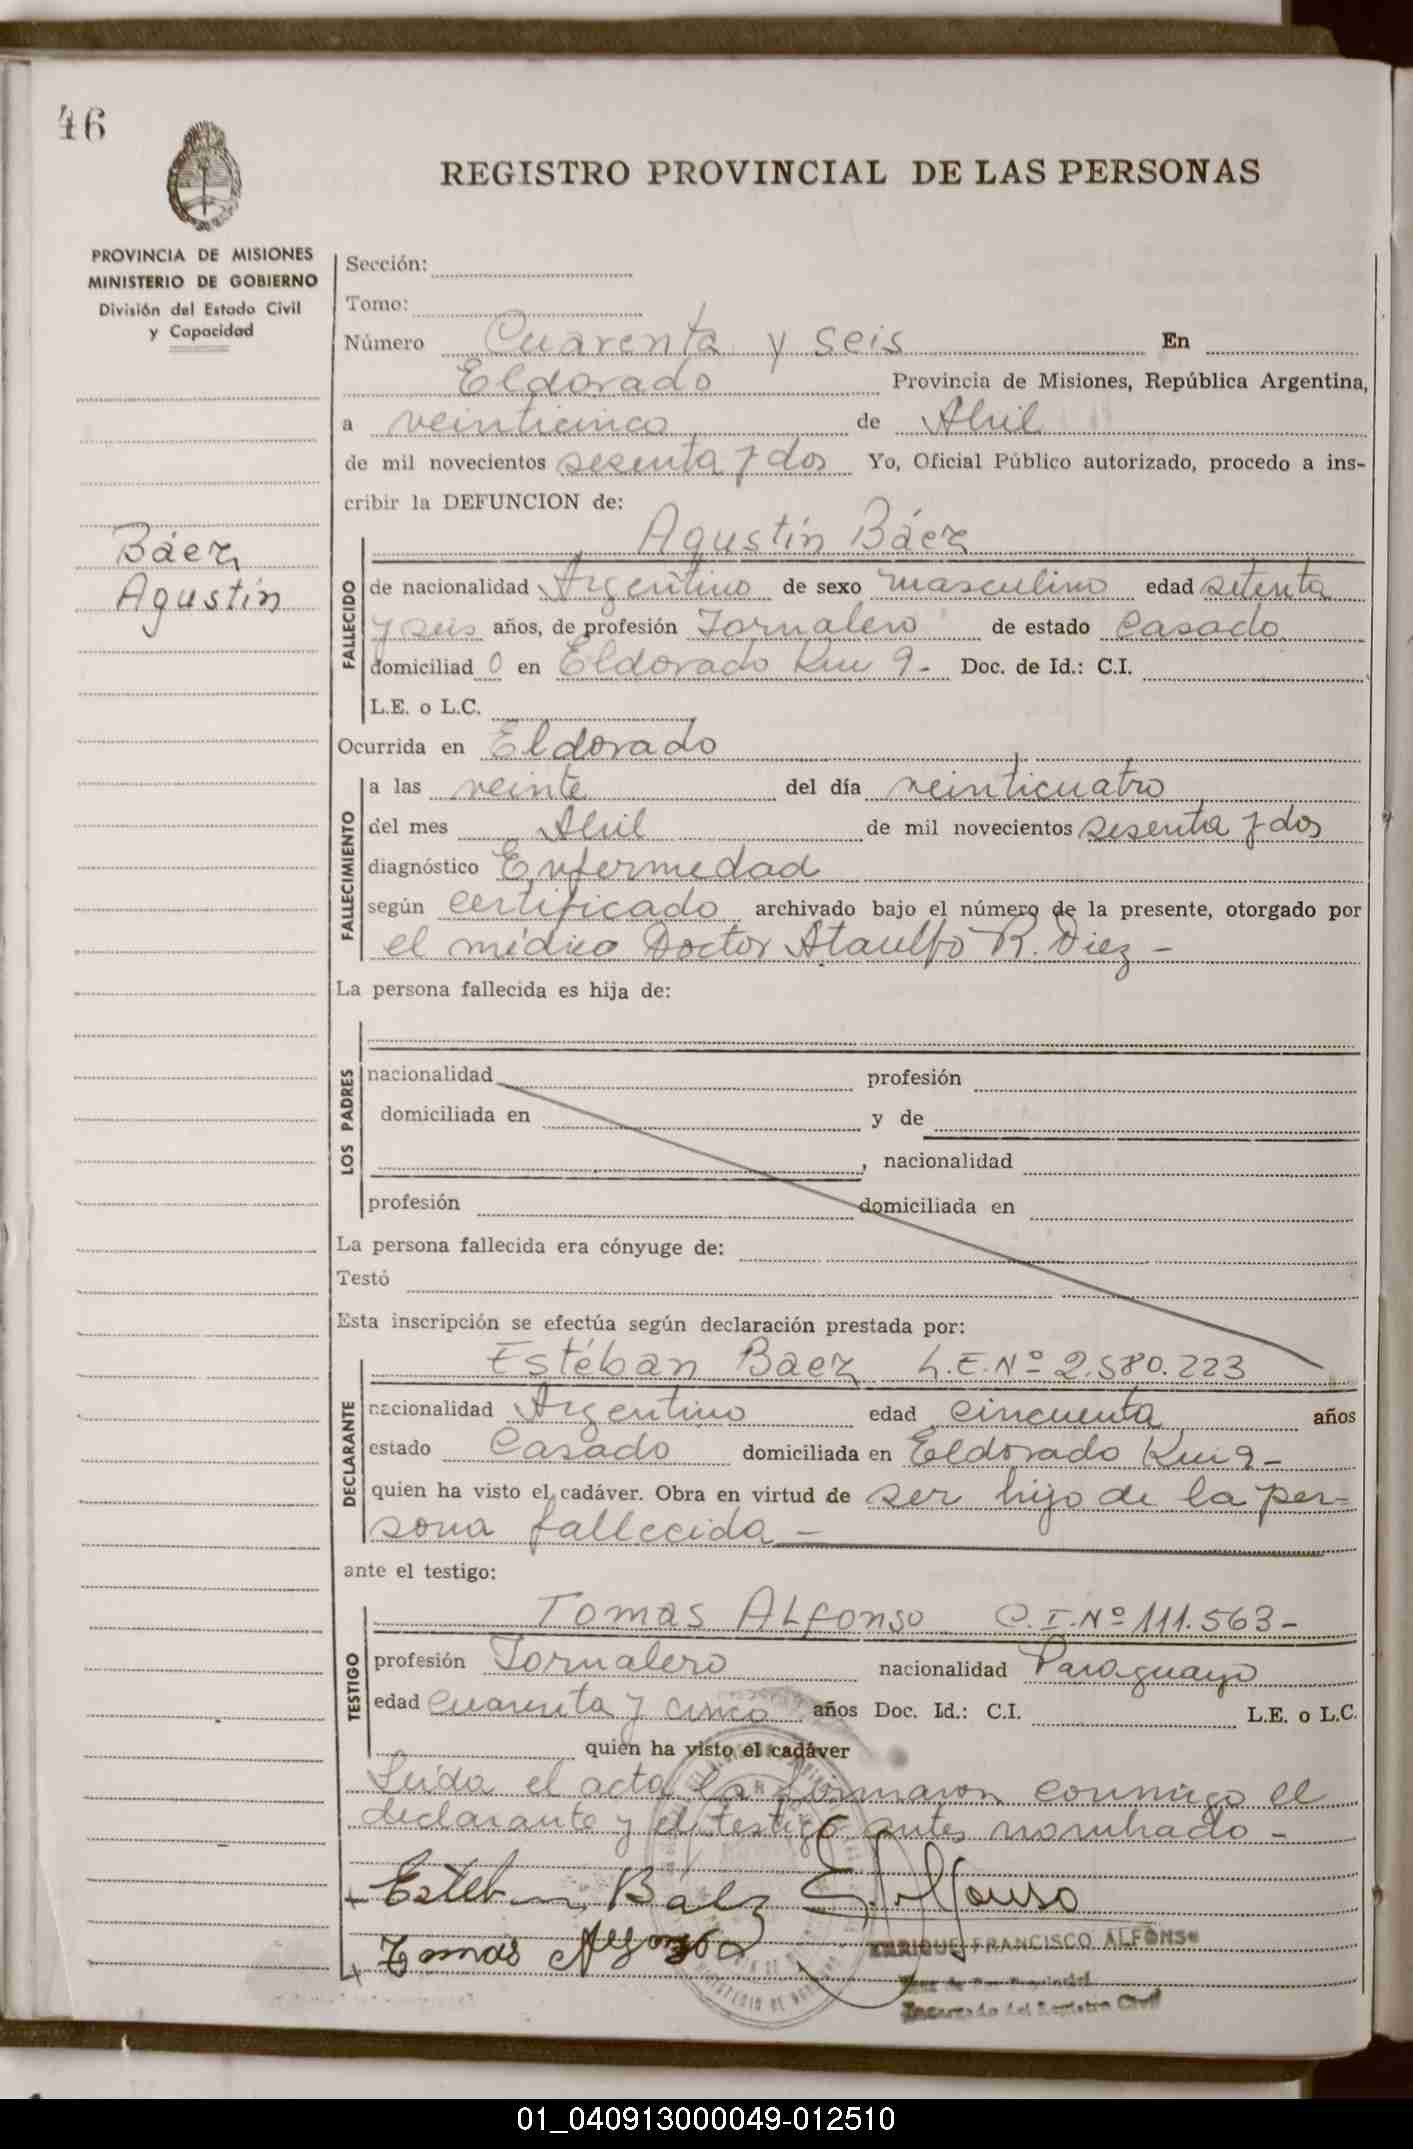 46
REGISTRO PROVINCIAL DE LAS PERSONAS
PROVINCIA DE MISIONES
MINISTERIO DE GOBIERNO
División del Estado Civil
y Capacidad
Báez
Agustín
Sección:
Tomo:
Número Cuarenta y seis En
Eldorado Provincia de Misiones, República Argentina,
a veinticinco de Abril
de mil novecientos sesenta y dos Yo, Oficial Público autorizado, procedo a ins-
cribir la DEFUNCION de:
Agustín Báez
FALLECIDO
de nacionalidad Argentino de sexo masculino edad setenta
y seis años, de profesión Jornalero de estado Casado
domiciliad o en Eldorado Km 9- Doc. de Id.: C.I.
L.E. o L.C.
Ocurrida en Eldorado
FALLECIMIENTO
a las veinte del día veinticuatro
del mes Abril de mil novecientos sesenta y dos
diagnóstico Enfermedad
según certificado archivado bajo el número de la presente, otorgado por
el médico Doctor Ataulfo R. Diez -
La persona fallecida es hija de:
LOS PADRES
nacionalidad profesión
domiciliada en y de
, nacionalidad
profesión domiciliada en
La persona fallecida era cónyuge de:
Testó
Esta inscripción se efectúa según declaración prestada por:
Estéban Baez L.E.Nº 2.580.223
DECLARANTE
nacionalidad Argentino edad cincuenta años
estado Casado domiciliada en Eldorado Km 9-
quien ha visto el cadáver. Obra en virtud de ser hijo de la per-
sona fallecida -
ante el testigo:
Tomas Alfonso C.I.Nº 111.563-
TESTIGO
profesión Jornalero nacionalidad Paraguayo
edad cuarenta y cinco años Doc. Id.: C.I. L.E. o L.C.
quien ha visto el cadáver
Leída el acta la firmaron conmigo el
declarante y el testigo antes nombrado -
Esteban Baez E. Alfonso
Tomas Alfonso
ENRIQUE FRANCISCO ALFONSO
Juez de Paz Provincial
Encargado del Registro Civil
01_040913000049-012510